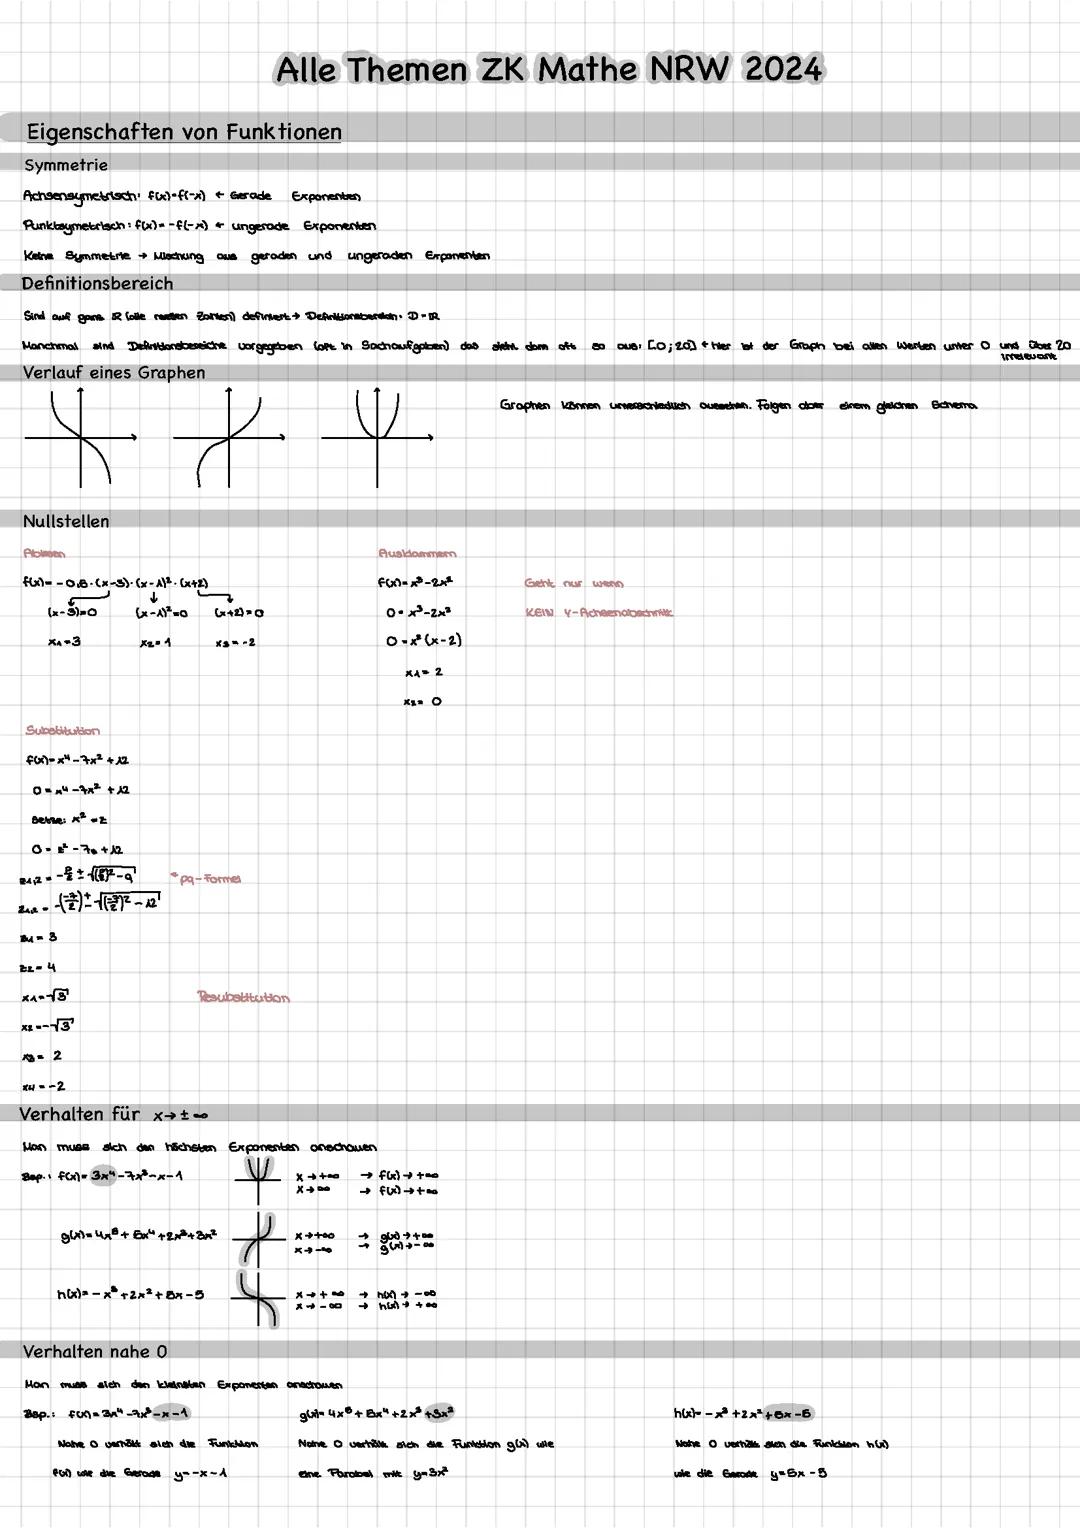 Alle Themen ZK Mathe NRW 2024
Eigenschaften von Funktionen
Symmetrie
Achsensymetrisch: f(x)=f(-x) ← Gerade Exponenten
Punktsymetrisch: f(x)=-f(-x) ← ungerade Exponenten
Keine Symmetrie → Mischung aus geraden und ungeraden Exponenten
Definitionsbereich
Sind auf ganz ℝ (alle reellen Zahlen) definiert → Definitionsbereich: D=ℝ
Manchmal sind Definitionsbereiche vorgegeben (oft in Sachaufgaben) das sieht dann oft so aus: [0;20] ← hier ist der Graph bei allen Werten unter 0 und über 20 irrelevant
Verlauf eines Graphen
Graphen können unterschiedlich aussehen. Folgen aber einem gleichen Schema.
Nullstellen
Ablesen
f(x)=-0,8·(x-3)·(x-1)²·(x+2)
(x-3)=0 (x-1)²=0 (x+2)=0
x₁=3 x₂=1 x₃=-2
Ausklammern
f(x)=x³-2x²
0=x³-2x²
0=x²(x-2)
x₁=2
x₂=0
Geht nur wenn
KEIN Y-Achsenabschnitt
Substitution
f(x)=x⁴-7x²+12
0=x⁴-7x²+12
Setze: x²=z
0=z²-7z+12
z₁,₂=-p/2±√((p/2)²-q) ← pq-Formel
z₁,₂=-(-7/2)±√((-7/2)²-12)
z₁=3
z₂=4
x₁=√3 Resubstitution
x₂=-√3
x₃=2
x₄=-2
Verhalten für x→±∞
Man muss sich den höchsten Exponenten anschauen
Bsp.: f(x)=3x⁴-7x³-x-1 x→+∞ → f(x)→+∞
x→∞ → f(x)→+∞
g(x)=4x⁵+5x⁴+2x³+3x² x→+∞ → g(x)→+∞
x→-∞ → g(x)→-∞
h(x)=-x³+2x²+5x-5 x→+∞ → h(x)→-∞
x→-∞ → h(x)→+∞
Verhalten nahe 0
Man muss sich den kleinsten Exponenten anschauen
Bsp.: f(x)=3x⁴-7x³-x-1
Nahe 0 verhält sich die Funktion
f(x) wie die Gerade y=-x-1
g(x)=4x⁵+5x⁴+2x³+3x²
Nahe 0 verhält sich die Funktion g(x) wie
eine Parabel mit y=3x²
h(x)=-x³+2x²+5x-5
Nahe 0 verhält sich die Funktion h(x)
wie die Gerade y=5x-5